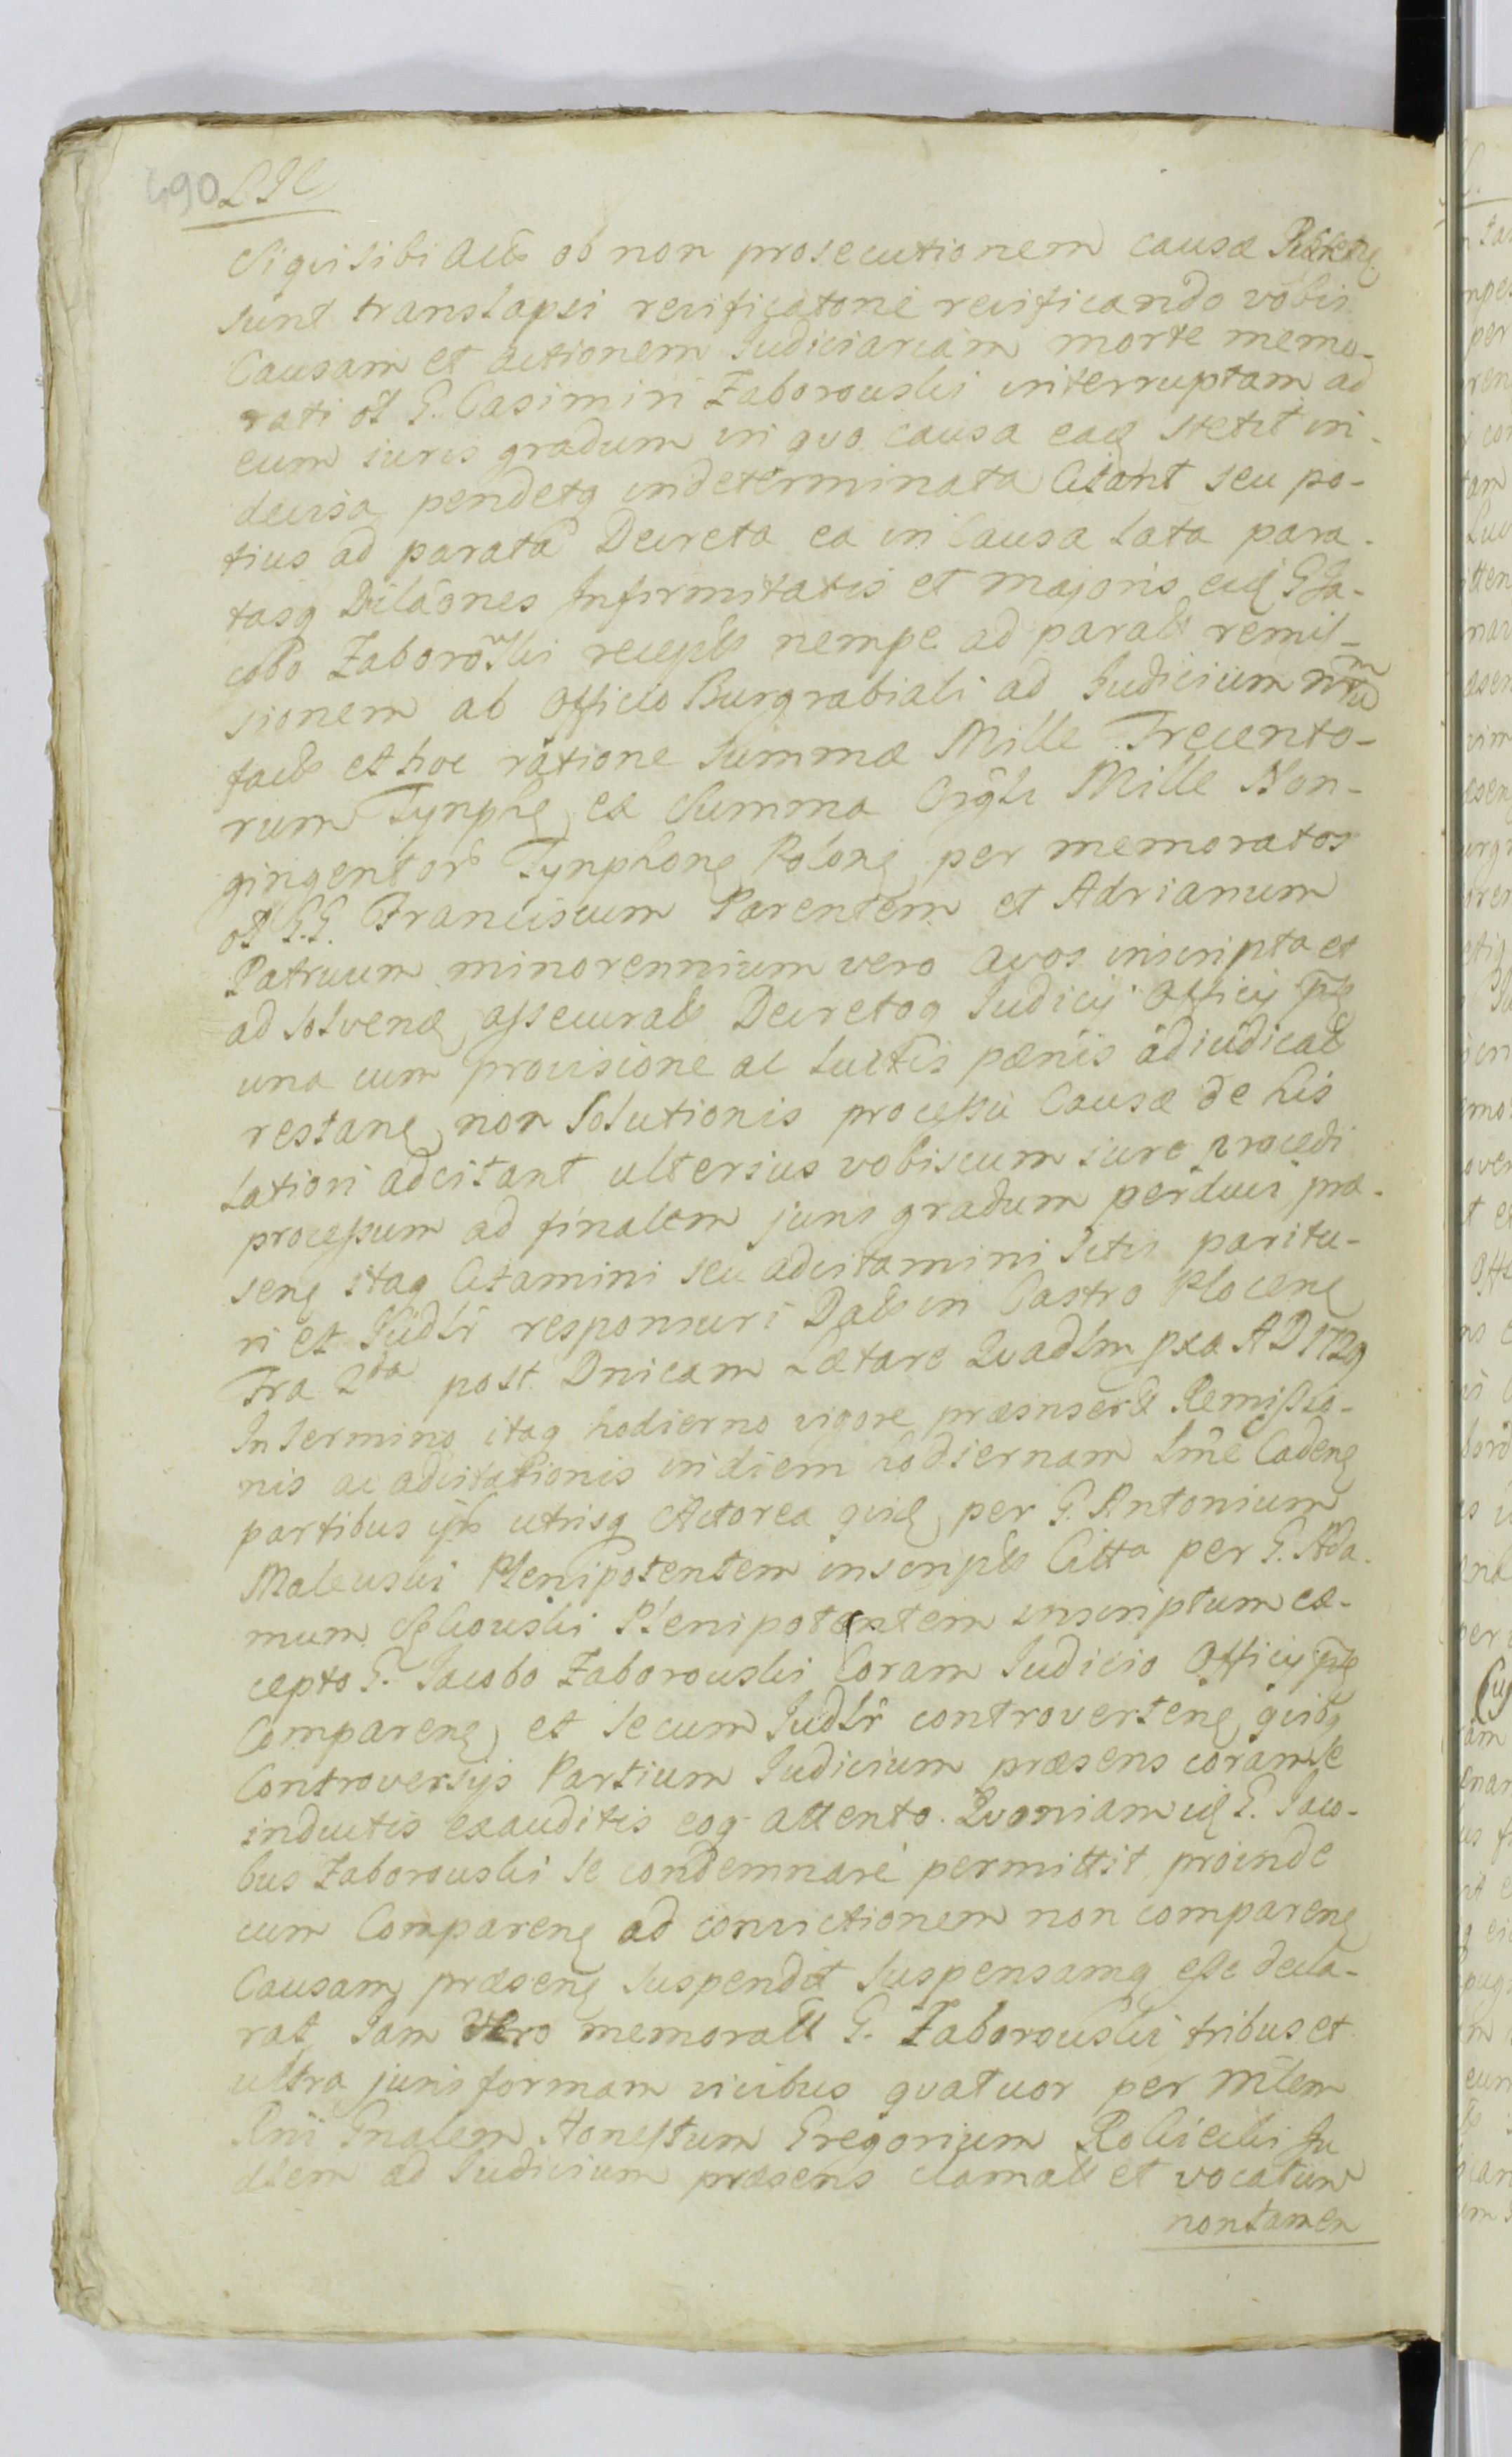 490 LIC
Siqui sibi Act ob non prosecutionem causæ
sunt translapsi reificatone reificando vobis
Causam et actionem Judiciariam morte memo-
rati ol G. Casimiri Zaborouski interruptam ad
eum juris gradum in quo causa ead stetit in-
decisa pendetq indeterminata Citant seu po-
tius ad parata Decreta ea in Causa lata para-
tasq Dilaones Infirmitatis et majoris eid G Ja-
cobo Zaborowski recept nempe ad parat remis-
sionem ab Officio Burgrabiali ad Judicium
fact et hoc ratione Summæ Mille Trecento-
rum Tynph ex Summa Orgli Mille Non-
gingentor Tynphon Polon per memoratos
ol G.G. Franciscum Parentem et Adrianum
Patruum minorennium vero avos inscripta et
ad solven assecurat Decretoq Judicij Officij pts
una cum provisione ac luctis pænis adiudicat
restan non Solutionis processu Causæ de his
latiori adcitant ulterius vobiscum jure procedi
processum ad finalem juris gradum perduci præ-
sen itaq Citamini seu adcitamini Sitis paritu-
ri et Judlr responsuri Dat in Castro Plocen
Fra 2da post Dnicam Lætare Quadlm pxa AD 1729
In termino itaq hodierno vigore præinsert Remissio-
nis ac adcitationis in diem hodiernam lme Caden
partibus ijs utrisq Actorea quid per G. Antonium
Maleuski Plenipotentem inscript Citta per G. Ada-
mum Plenipotentem inscriptum ex-
cepto G. Jacobo Zaborouski Coram Judicio Officij pts
Comparen et secum Judlr controverten quibq
Controversijs Partium Judicium præsens coram se
inductis exauditis eoq attento. Quoniam id G. Jaco-
bus Zaborouski se condemnare permittit proinde
cum Comparen ad convictionem non comparen
Causam præsen suspendit suspensamq esse decla-
rat Jam vero memorat G. Zaborouski tribus et
ultra juris formam vicibus quatuor per Mlem
Rni Gnalem Honestum Gregorium Ju
dlem ad Judicium præsens clamat et vocatum
non tamen